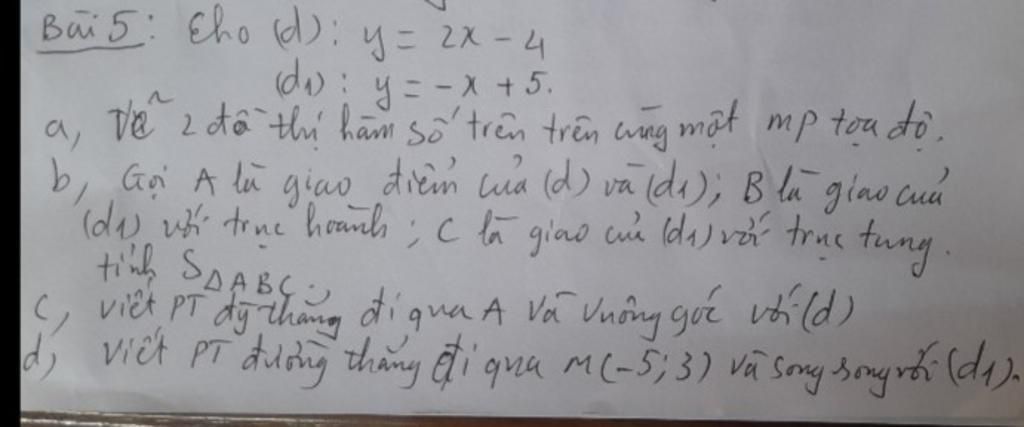 Bài 5: Cho (d): y = 2x - 4
(d1): y = -x + 5.
a, Vẽ 2 đồ thị hàm số trên trên cùng một mp tọa độ.
b, Gọi A là giao điểm của (d) và (d1); B là giao của
(d1) với trục hoành; C là giao của (d1) với trục tung.
tính S∆ABC.
c, viết PT đg thẳng đi qua A và vuông góc với (d)
d, viết PT đường thẳng đi qua M(-5;3) và song song với (d1).